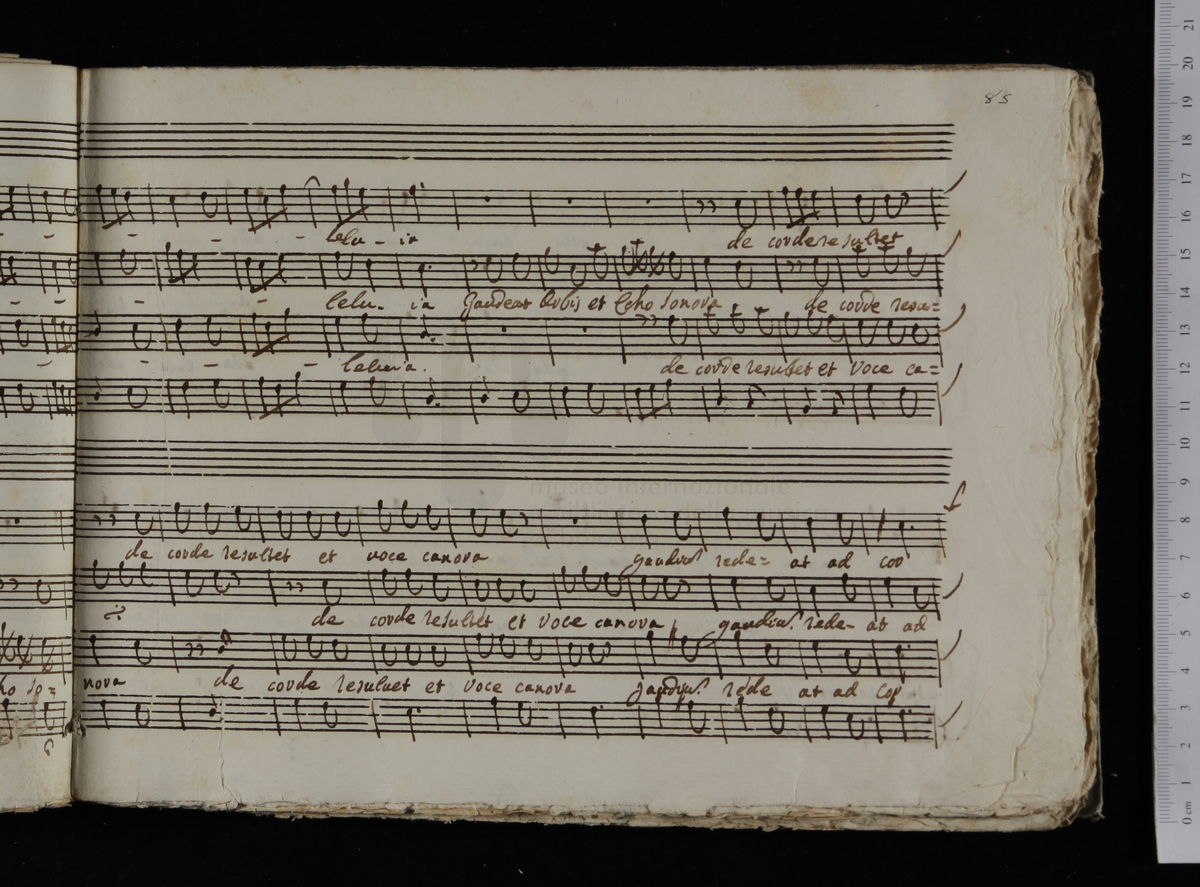 85
lelu - ia
de corde resultet
lelu - ia Gaudeat Orbis et Echo sonora de corde resu=
leluia. de corde resultet et Voce ca=
museo internazionale
de corde resultet et voce canora gaudiu rede= at ad cor
ij
de corde resultet et voce canora gaudiu rede- at ad
ho so= nora de corde resultet et Voce canora gaudiu rede at ad cor
0 cm 1 2 3 4 5 6 7 8 9 10 11 12 13 14 15 16 17 18 19 20 21